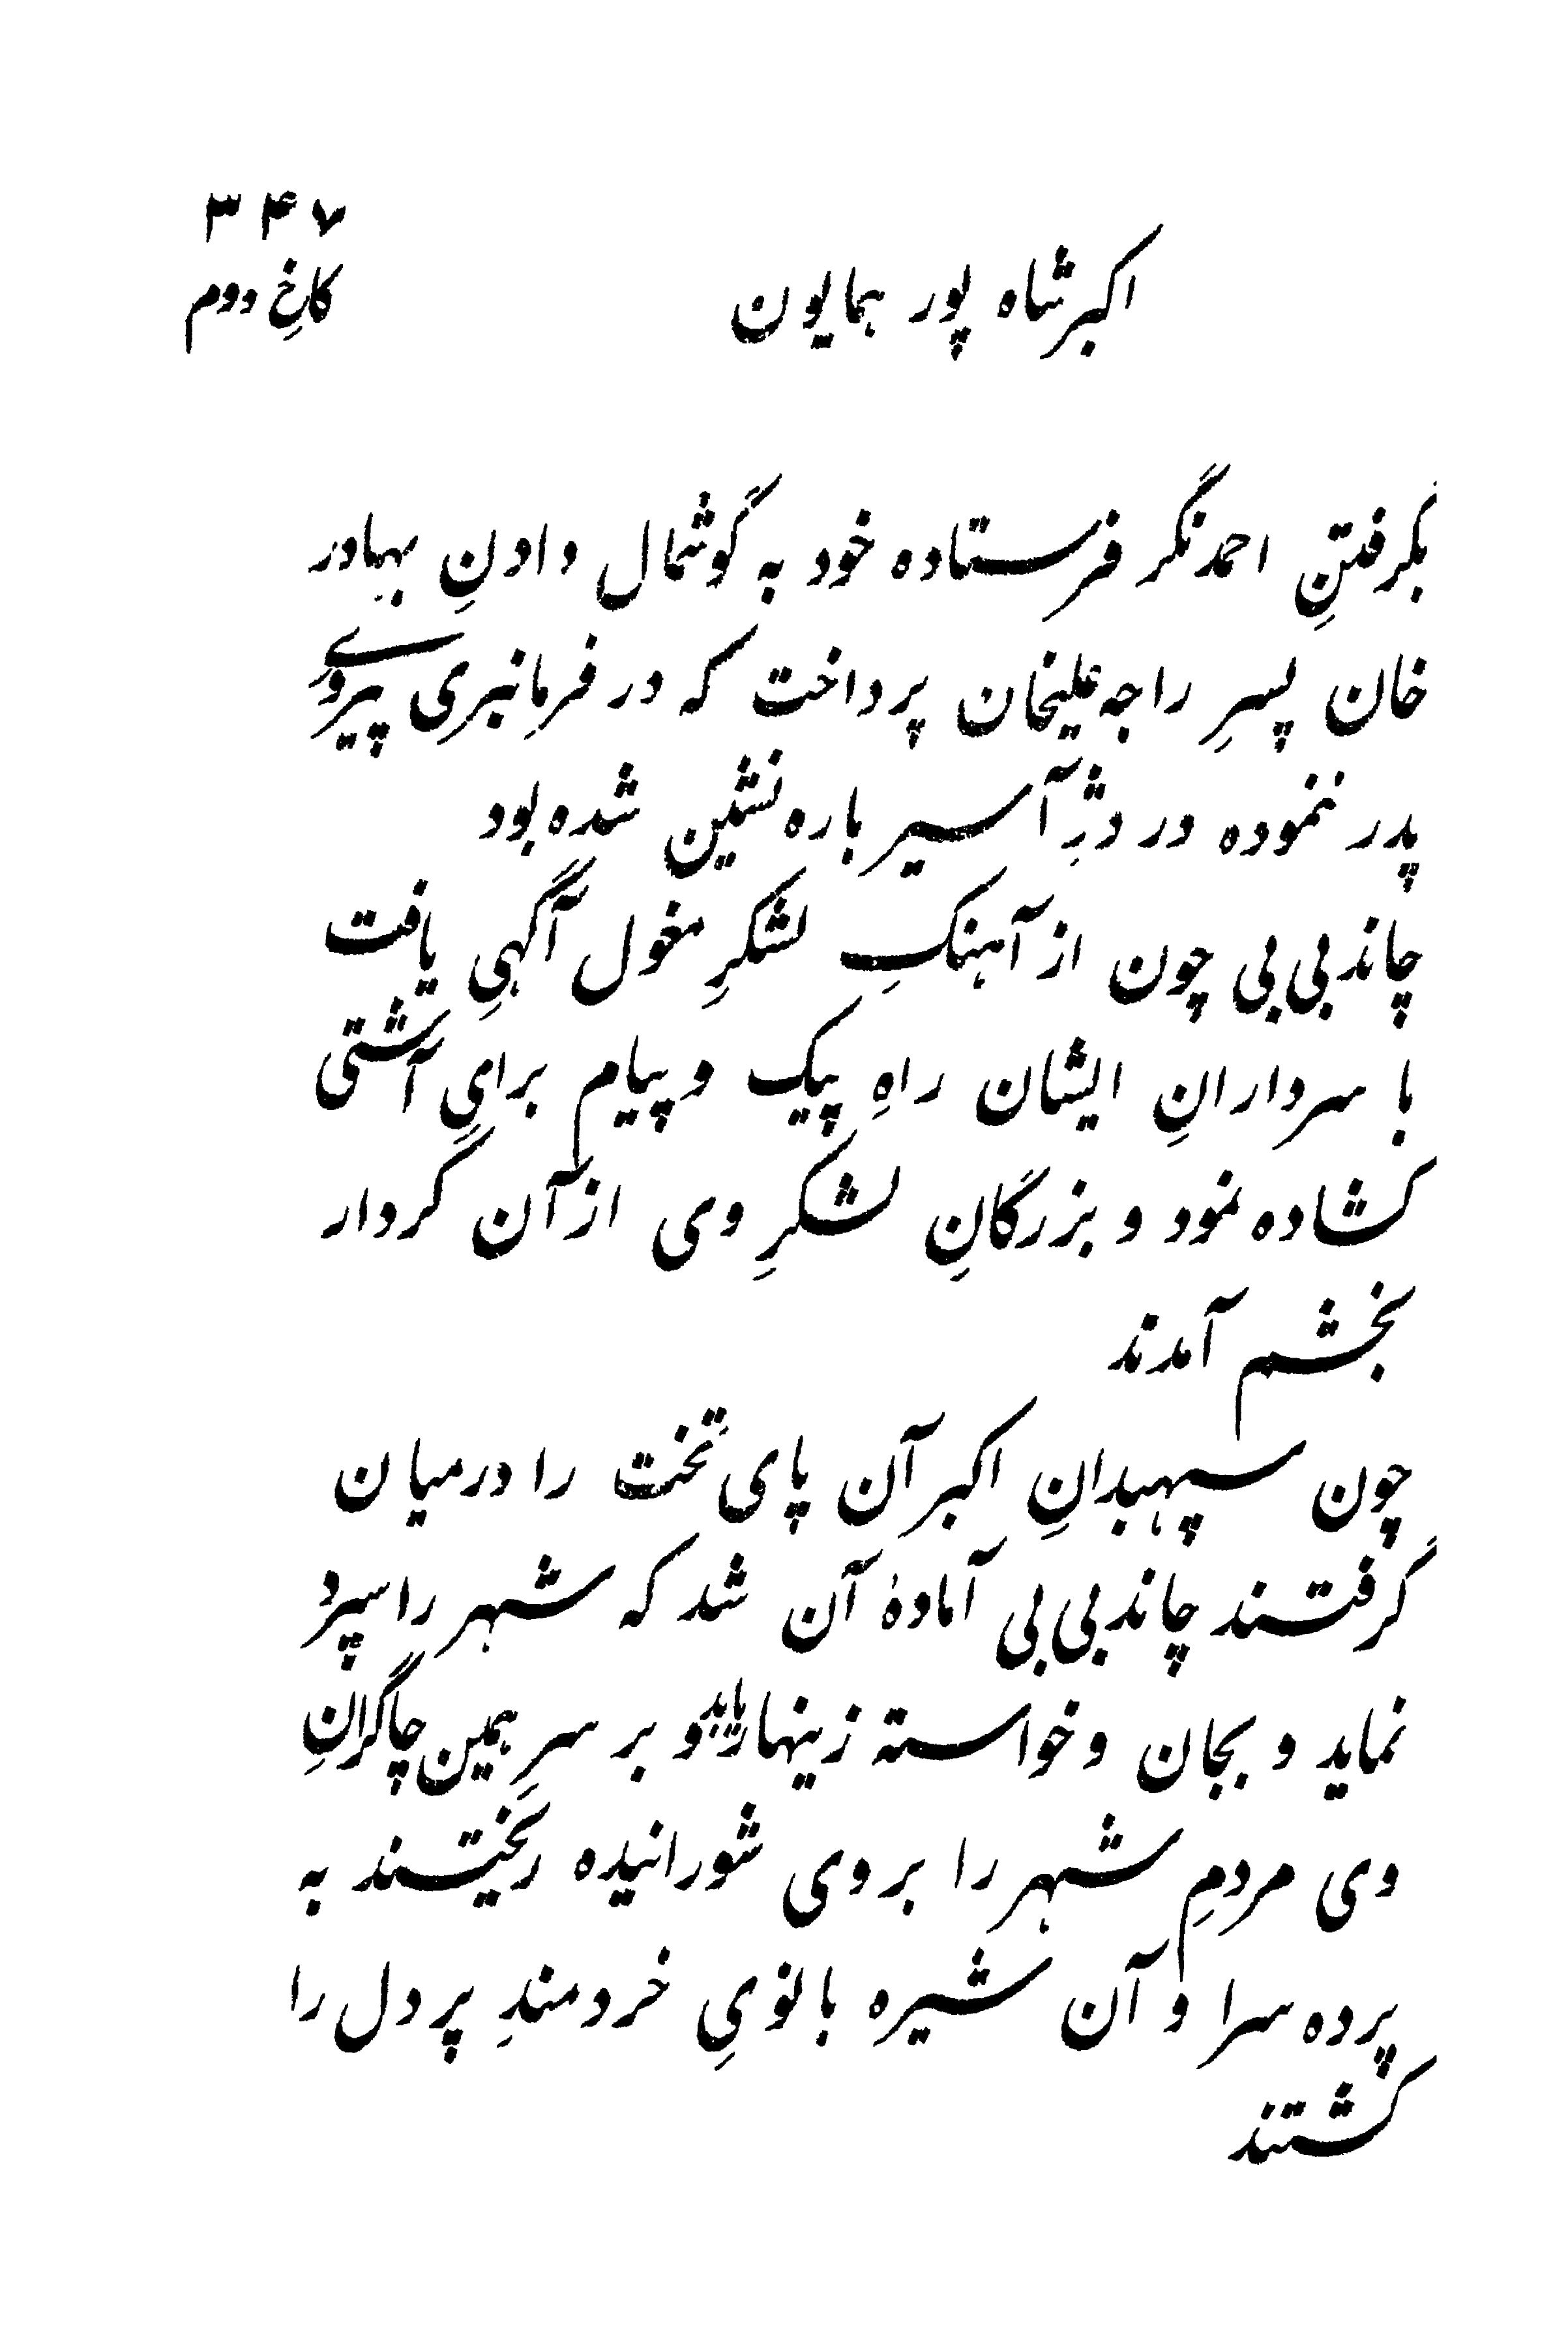 ۳۴۷
کاخِ دوم
اکبرشاه پور همایون
بگرفتنِ احمدنگر فرستاده خود به گوشمال دادنِ بهادر
خان پسرِ راجه علیخان پرداخت که در فرمانبری پیروی
پدر ننموده در دژِ آسیر باره نشین شده بود
چاند بی بی چون از آهنگِ لشکرِ مغول آگهی یافت
با سردارانِ ایشان راهِ پیک و پیام برای آشتی
کشاده نمود و بزرگانِ لشکرِ وی از آن کردار
بخشم آمدند
چون سپهبدانِ اکبر آن پای تخت را درمیان
گرفتند چاند بی بی آمادهٔ آن شد که شهر را سپرد
نماید و بجان و خواسته زینهار یابد و بر سرِ همین چاکرانِ
وی مردمِ شهر را بر وی شورانیده ریختند به
پرده سرا و آن شیره بانویِ خردمندِ پر دل را
کشتند